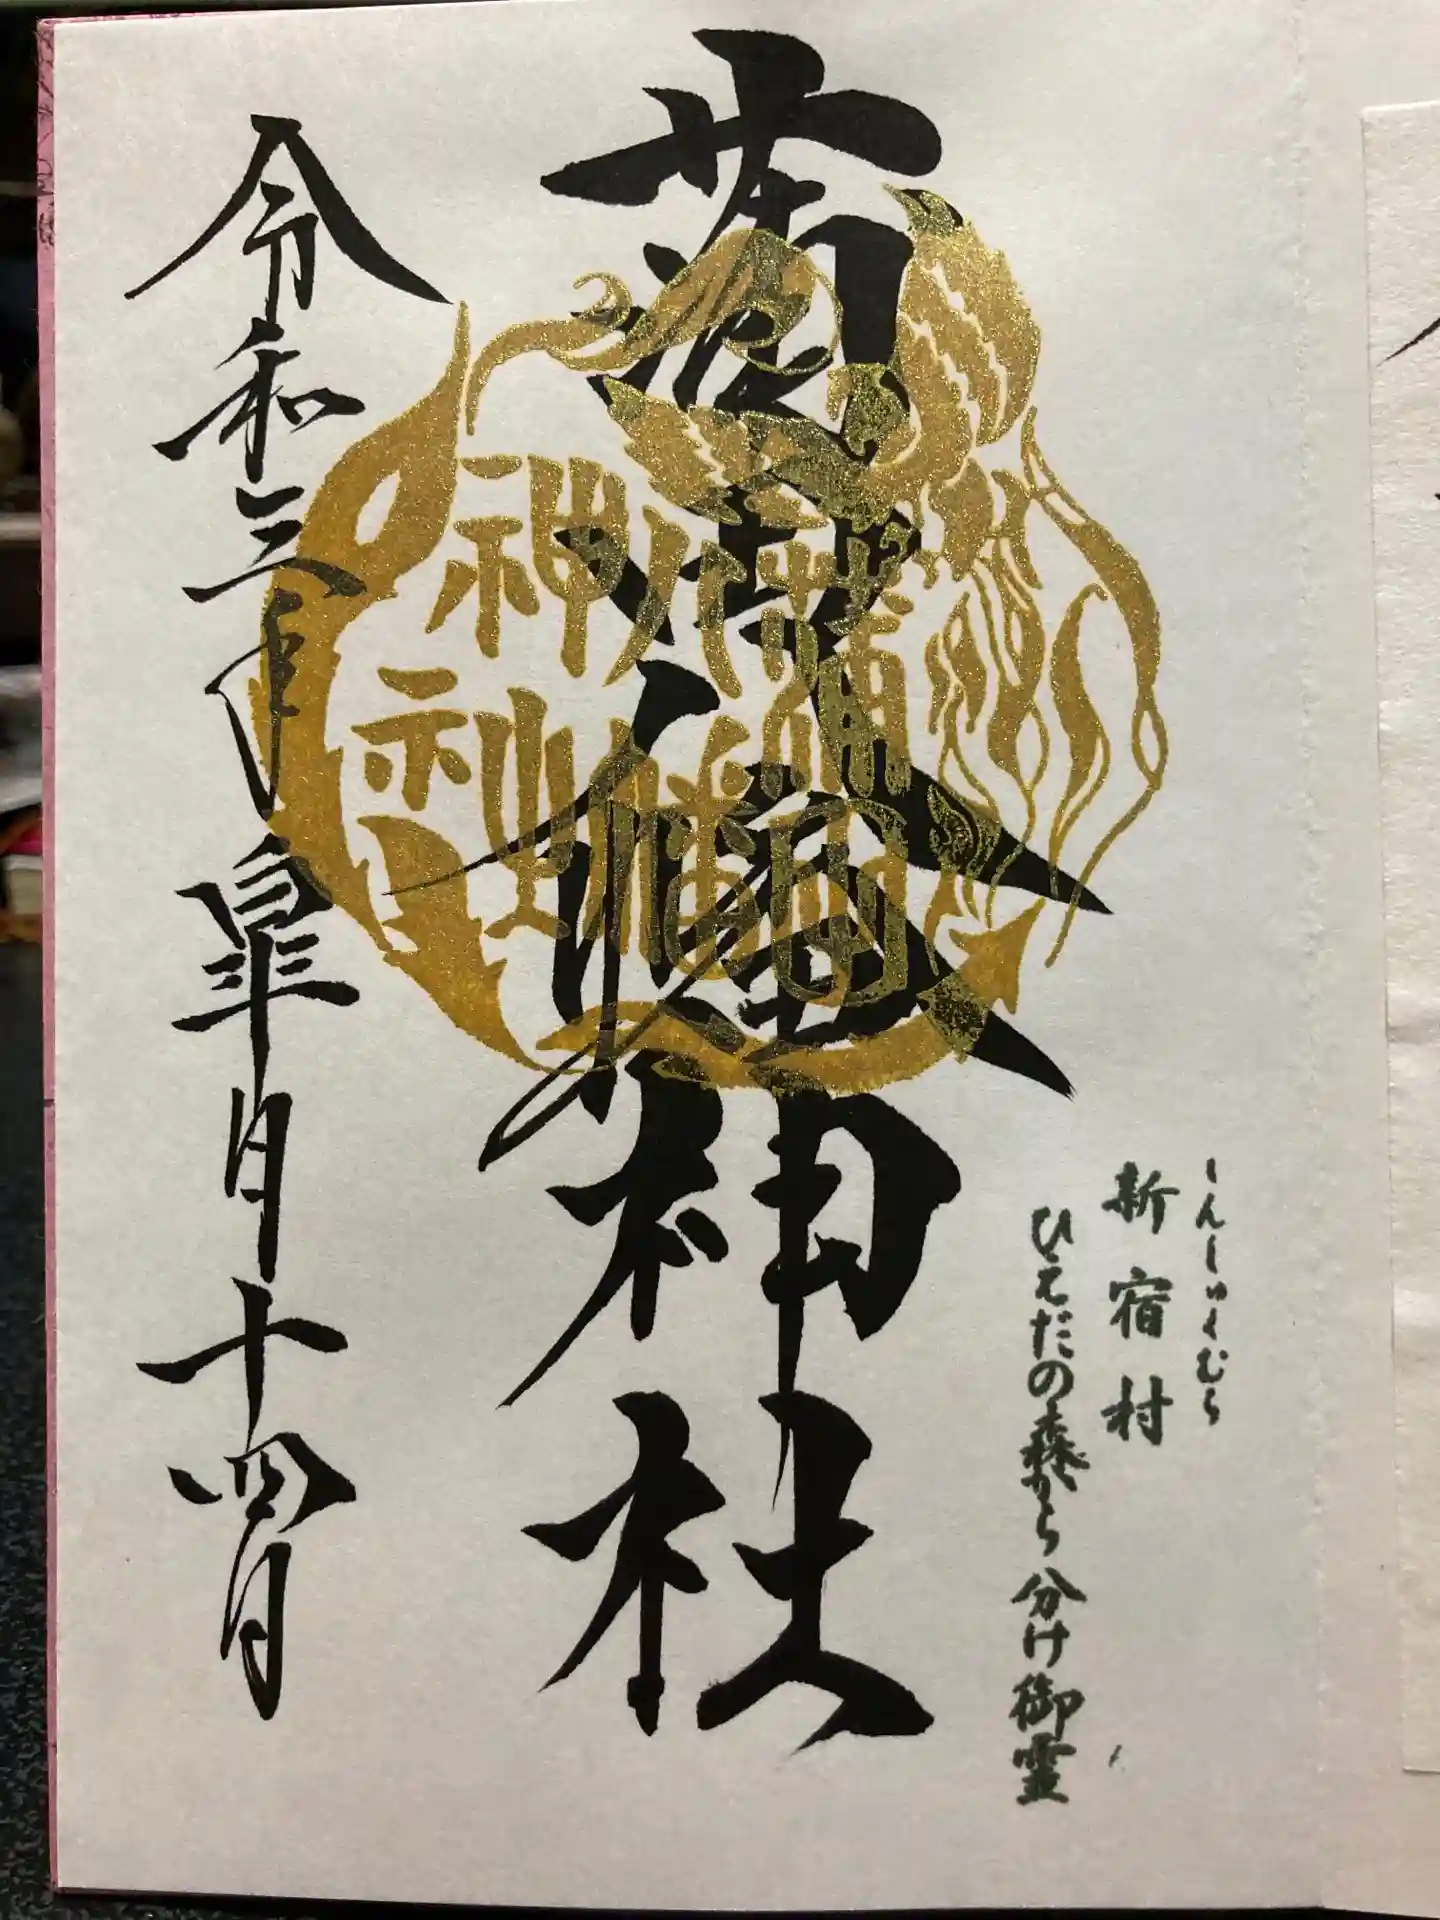 しんしゅくむら
新宿村
ひえだの森から分け御霊
蒲田八幡神社
蒲田
八幡
神社
令和三年皐月十四日